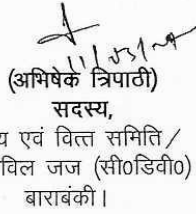 (अभिषेक त्रिपाठी)
सदस्य,
य एवं वित्त समिति /
विल जज (सी0डिवी0)
बाराबंकी।